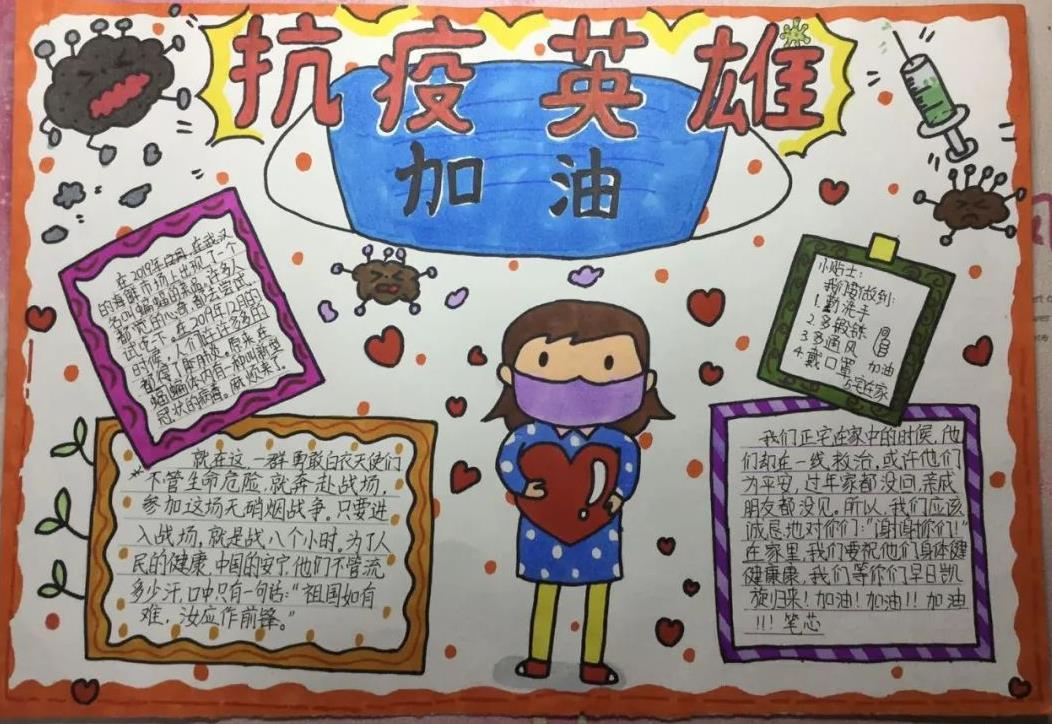 抗疫英雄
加油
在2019年12月,在武汉
的海鲜市场上出现了一个
名叫蝙蝠的菜品,许多人
都 的心意,都去尝试
试吃一下。在2019年12月的
时候,人们许许多多的
都得了肺炎。原来在
蝙蝠体内有一种叫新型
冠状的病毒。麻烦来了
小贴士:
我们要做到:
1.勤洗手
2.多锻炼
3.多通风 加油
4.戴口罩
宅在家
就在这,一群勇敢白衣天使们
不管生命危险,就奔赴战场,
参加这场无硝烟战争。只要进
入战场,就是战八个小时。为了人
民的健康,中国的安宁他们不管流
多少汗,口中只有一句话:“祖国如有
难,汝应作前锋。”
我们正宅在家中的时候,他
们却在一线救治,或许他们
为平安,过年家都没回,亲戚
朋友都没见。所以,我们应该
诚恳地对你们:“谢谢你们!”
在家里,我们要祝他们身体健
健康康,我们等你们早日凯
旋归来!加油!加油!!加油
!!!笔芯